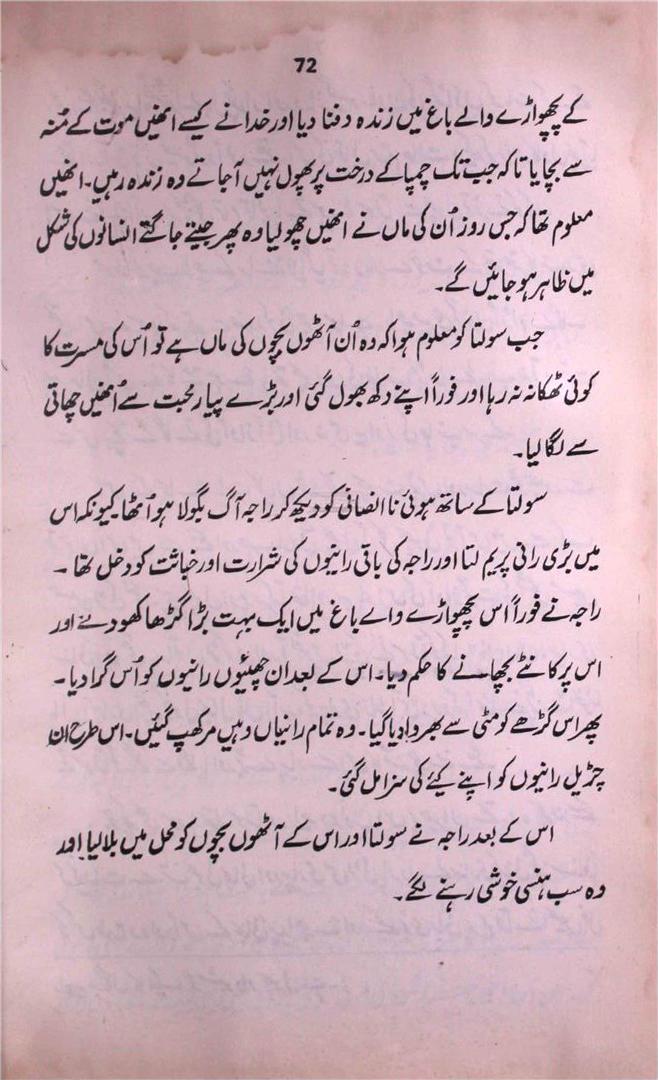 72
کے پچھواڑے والے باغ میں زندہ دفنا دیا اور خدا نے کیسے انھیں موت کے مُنہ
سے بچایا تاکہ جب تک چمپا کے درخت پر پھول نہیں آجاتے وہ زندہ رہیں۔ انھیں
معلوم تھا کہ جس روز اُن کی ماں نے انھیں چھو لیا وہ پھر جیتے جاگتے انسانوں کی شکل
میں ظاہر ہو جائیں گے۔
جب سولتا کو معلوم ہوا کہ وہ اُن آٹھوں بچّوں کی ماں ہے تو اُس کی مسرت کا
کوئی ٹھکانہ نہ رہا اور فوراً اپنے دکھ بھول گئی اور بڑے پیار محبت سے اُنھیں چھاتی
سے لگا لیا۔
سولتا کے ساتھ ہوئی نا انصافی کو دیکھ کر راجہ آگ بگولا ہو اُٹھا کیونکہ اس
میں بڑی رانی پریم لتا اور راجہ کی باقی رانیوں کی شرارت اور خباثت کو دخل تھا ۔
راجہ نے فوراً اس پچھواڑے والے باغ میں ایک بہت بڑا گڑھا کھودنے اور
اس پر کانٹے بچھانے کا حکم دیا۔ اس کے بعد ان چھیئوں رانیوں کو اُس گرا دیا ۔
پھر اس گڑھے کو مٹی سے بھروا دیا گیا۔ وہ تمام رانیاں وہیں مرکھپ گئیں۔ اس طرح ان
چڑیل رانیوں کو اپنے کیئے کی سزا مل گئی۔
اس کے بعد راجہ نے سولتا اور اس کے آٹھوں بچّوں کو محل میں بلا لیا اور
وہ سب ہنسی خوشی رہنے لگے۔